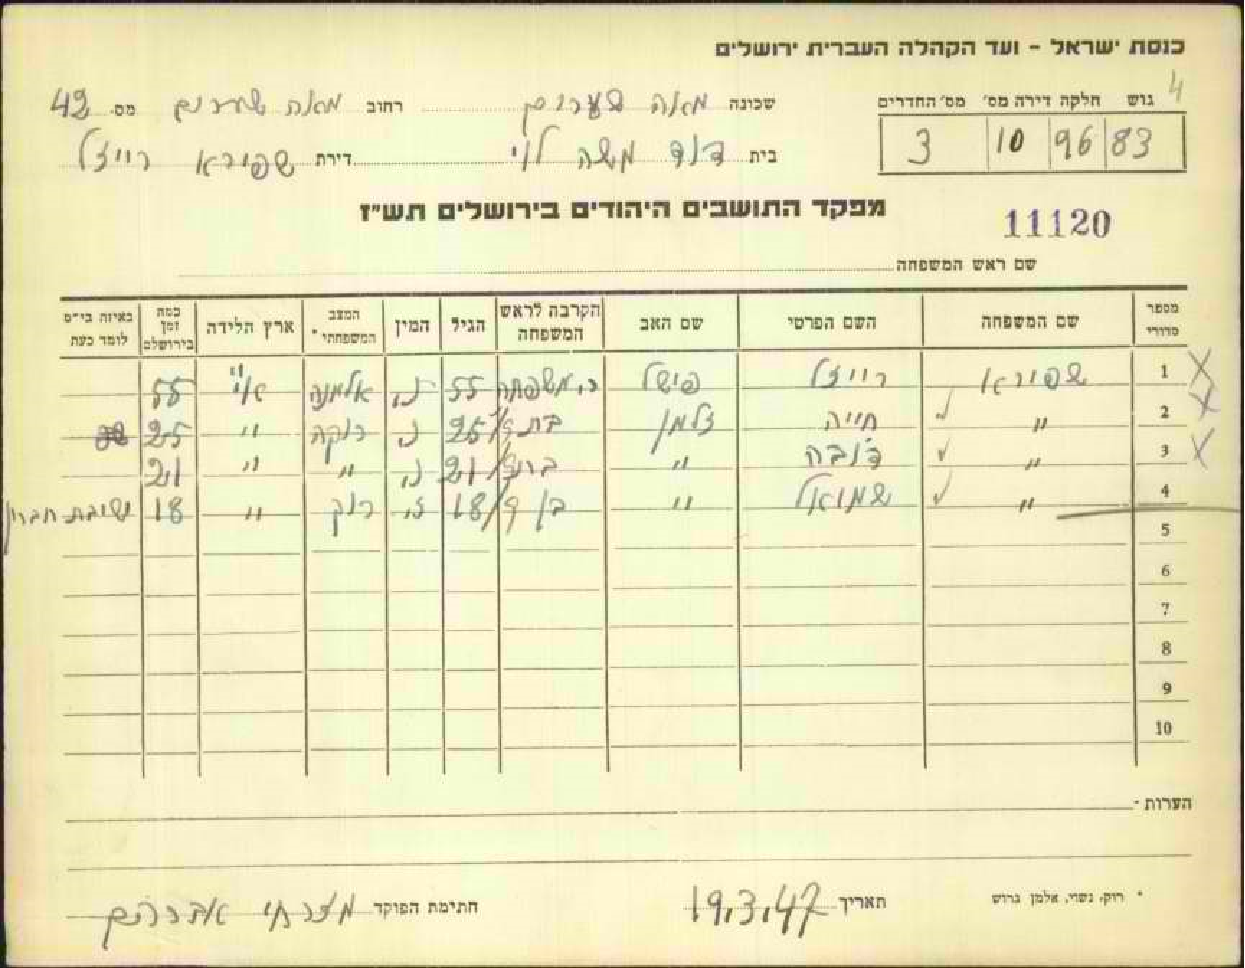 כנסת ישראל - ועד הקהלה העברית ירושלים
4
שכונה מאה שערים רחוב מאה שערים מס. 42
גוש חלקה דירה מס׳ מס׳ החדרים
83 96 10 3
בית דוד משה לוי דירת שפירא רייזל
מפקד התושבים היהודים בירושלים תש"ז
11120
שם ראש המשפחה
מספר סדורי שם המשפחה השם הפרטי שם האב הקרבה לראש המשפחה הגיל המין המצב המשפחתי * ארץ הלידה כמה זמן בירושלם באיזה בי"ס לומד כעת
1 שפירא רייזל פישל ר. משפחה 55 נ. אלמנה א"י 55
2 " חייה זלמן בת 25 נ. רוקה " 25
3 " דובה " בת 21 נ. " " 21
4 " שמואל " בן 18 ז. רוק " 18 ישיבת חברון
5
6
7
8
9
10
הערות -
* רוק, נשוי, אלמן גרוש
תאריך 19.3.47 חתימת הפוקד מזרחי אברהם